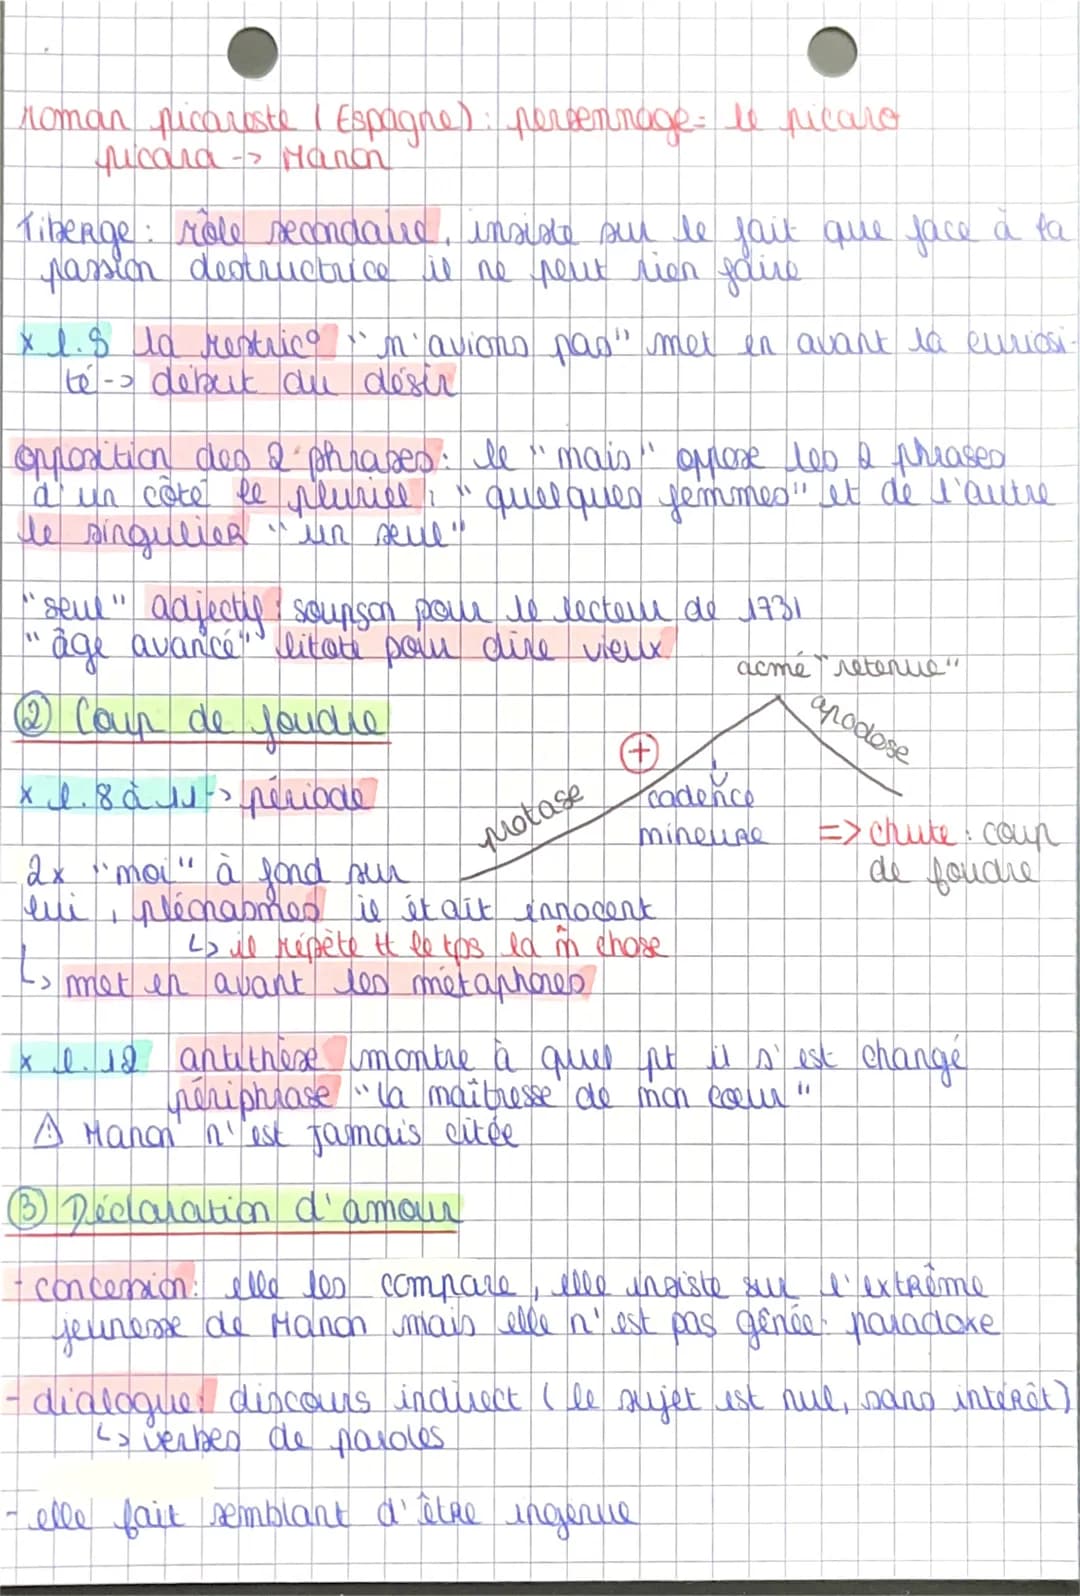 roman picareste (Espagne) : personnage = le picaro
picara -> Manon
Tiberge : rôle secondaire, insiste sur le fait que face à la
passion destructrice il ne peut rien faire
x l.8 la restric° "n'avions pas" met en avant la curiosi-
té -> début du désir
opposition des 2 phrases : le "mais" oppose les 2 phrases
d'un côté le pluriel : "quelques femmes" et de l'autre
le singulier "un seul"
"seul" adjectif : soupson pour le lecteur de 1731
"âge avancé" litote pour dire vieux
acmé "retenue"
② Coup de foudre
apodose
+
x l.8 à 11 -> période
protase
cadence
mineure
=> chute : coup
de foudre
2x "moi" à fond sur
lui, pléonasmes il était innocent
↳ il répète tt le tps la m̂ chose
↳ met en avant les métaphores
x l.12 antithèse montre à quel pt il s'est changé
périphrase "la maîtresse de mon cœur"
⚠ Manon n'est jamais citée
③ Déclaration d'amour
- concession : elle les compare, elle insiste sur l'extrême
jeunesse de Manon mais elle n'est pas gênée : paradoxe
- dialogue : discours indirect (le sujet est nul, sans intérêt)
↳ verbes de paroles
- elle fait semblant d'être ingenue